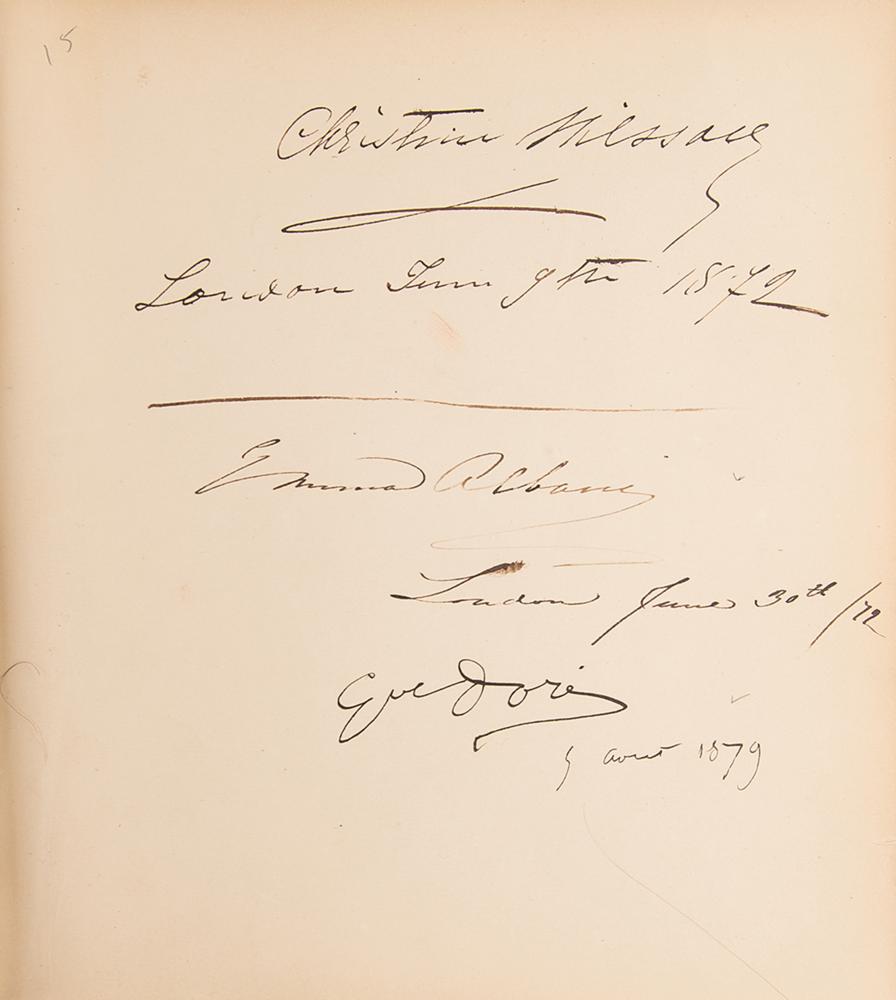 15
Christine Nilsson
London June 9th 1872
Emma Albani
London June 30th /72
Gve Doré
5 aout 1879